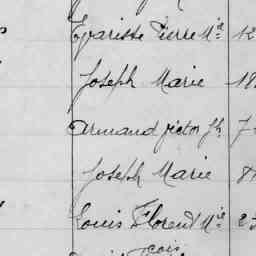 Evariste Pierre Mie 12
Joseph Marie 18
Armand Victor Jh 7
Joseph Marie
Louis Florent Mie 2